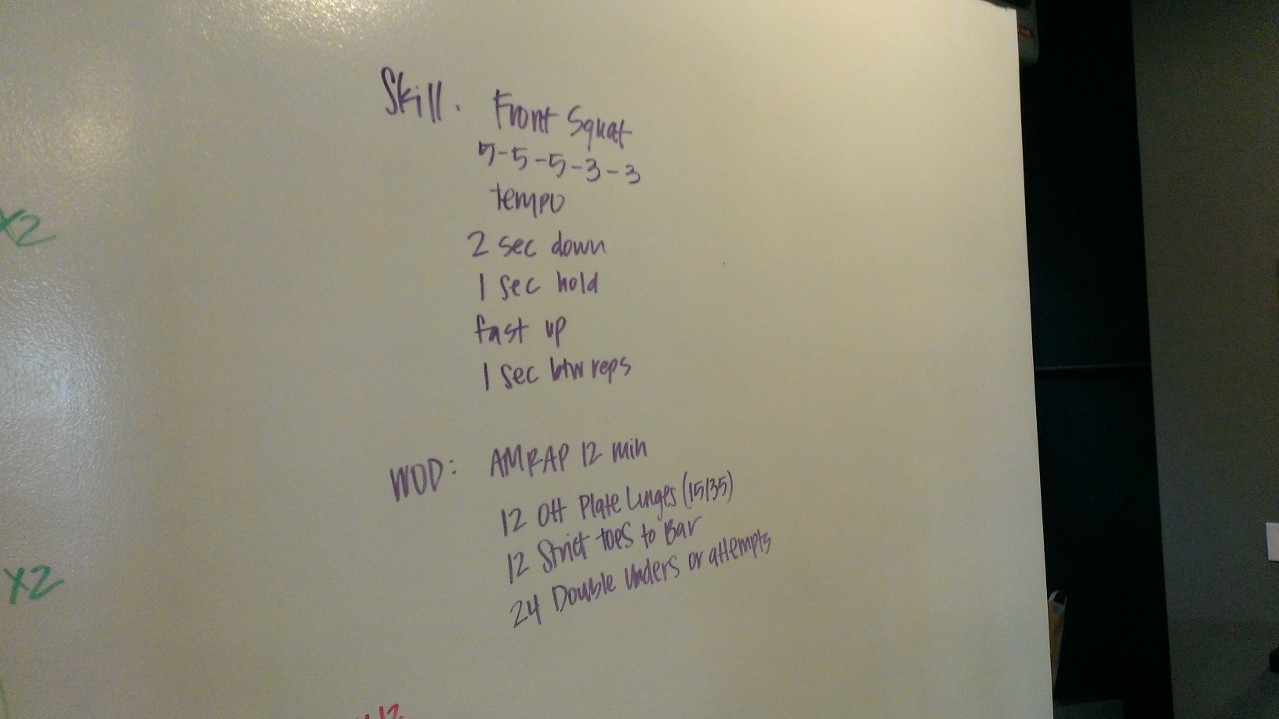 Skill. Front Squat
5-5-5-3-3
tempo
2 sec down
1 sec hold
fast up
1 sec btw reps
WOD: AMRAP 12 min
12 OH Plate Lunges (15/35)
12 Strict toes to Bar
24 Double Unders or attempts
X2
X2